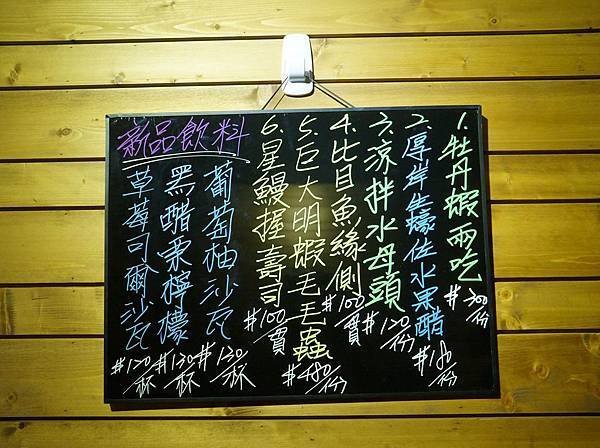 1.牡丹蝦兩吃 $300/份
2.厚岸生蠔佐水果醋 $180/份
3.涼拌水母頭 $120/份
4.比目魚緣側 $100/貫
5.巨大明蝦毛毛蟲 $480/份
6.星鰻握壽司 $100/貫
新品飲料
葡萄柚沙瓦 $130/杯
黑醋栗檸檬 $130/杯
草莓可爾沙瓦 $120/杯